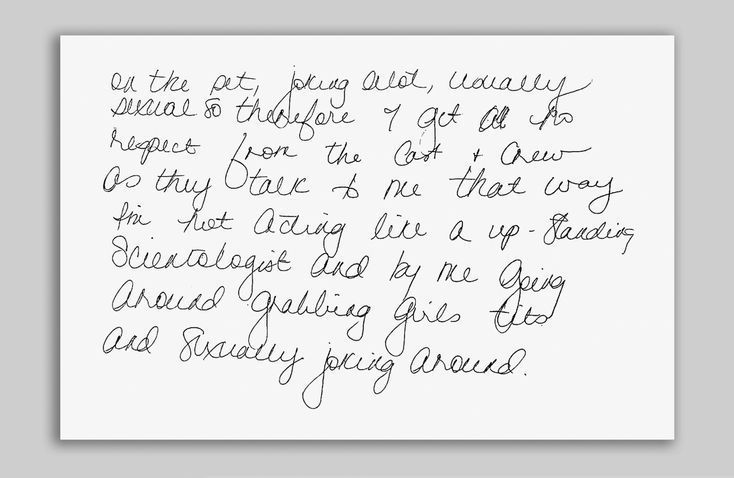 on the set, joking alot, usually
sexual so therefore I get no
respect from the Cast + Crew
as they talk to me that way
I'm not acting like a up-standing
Scientologist and by me going
around grabbing girls tits
and sexually joking around.